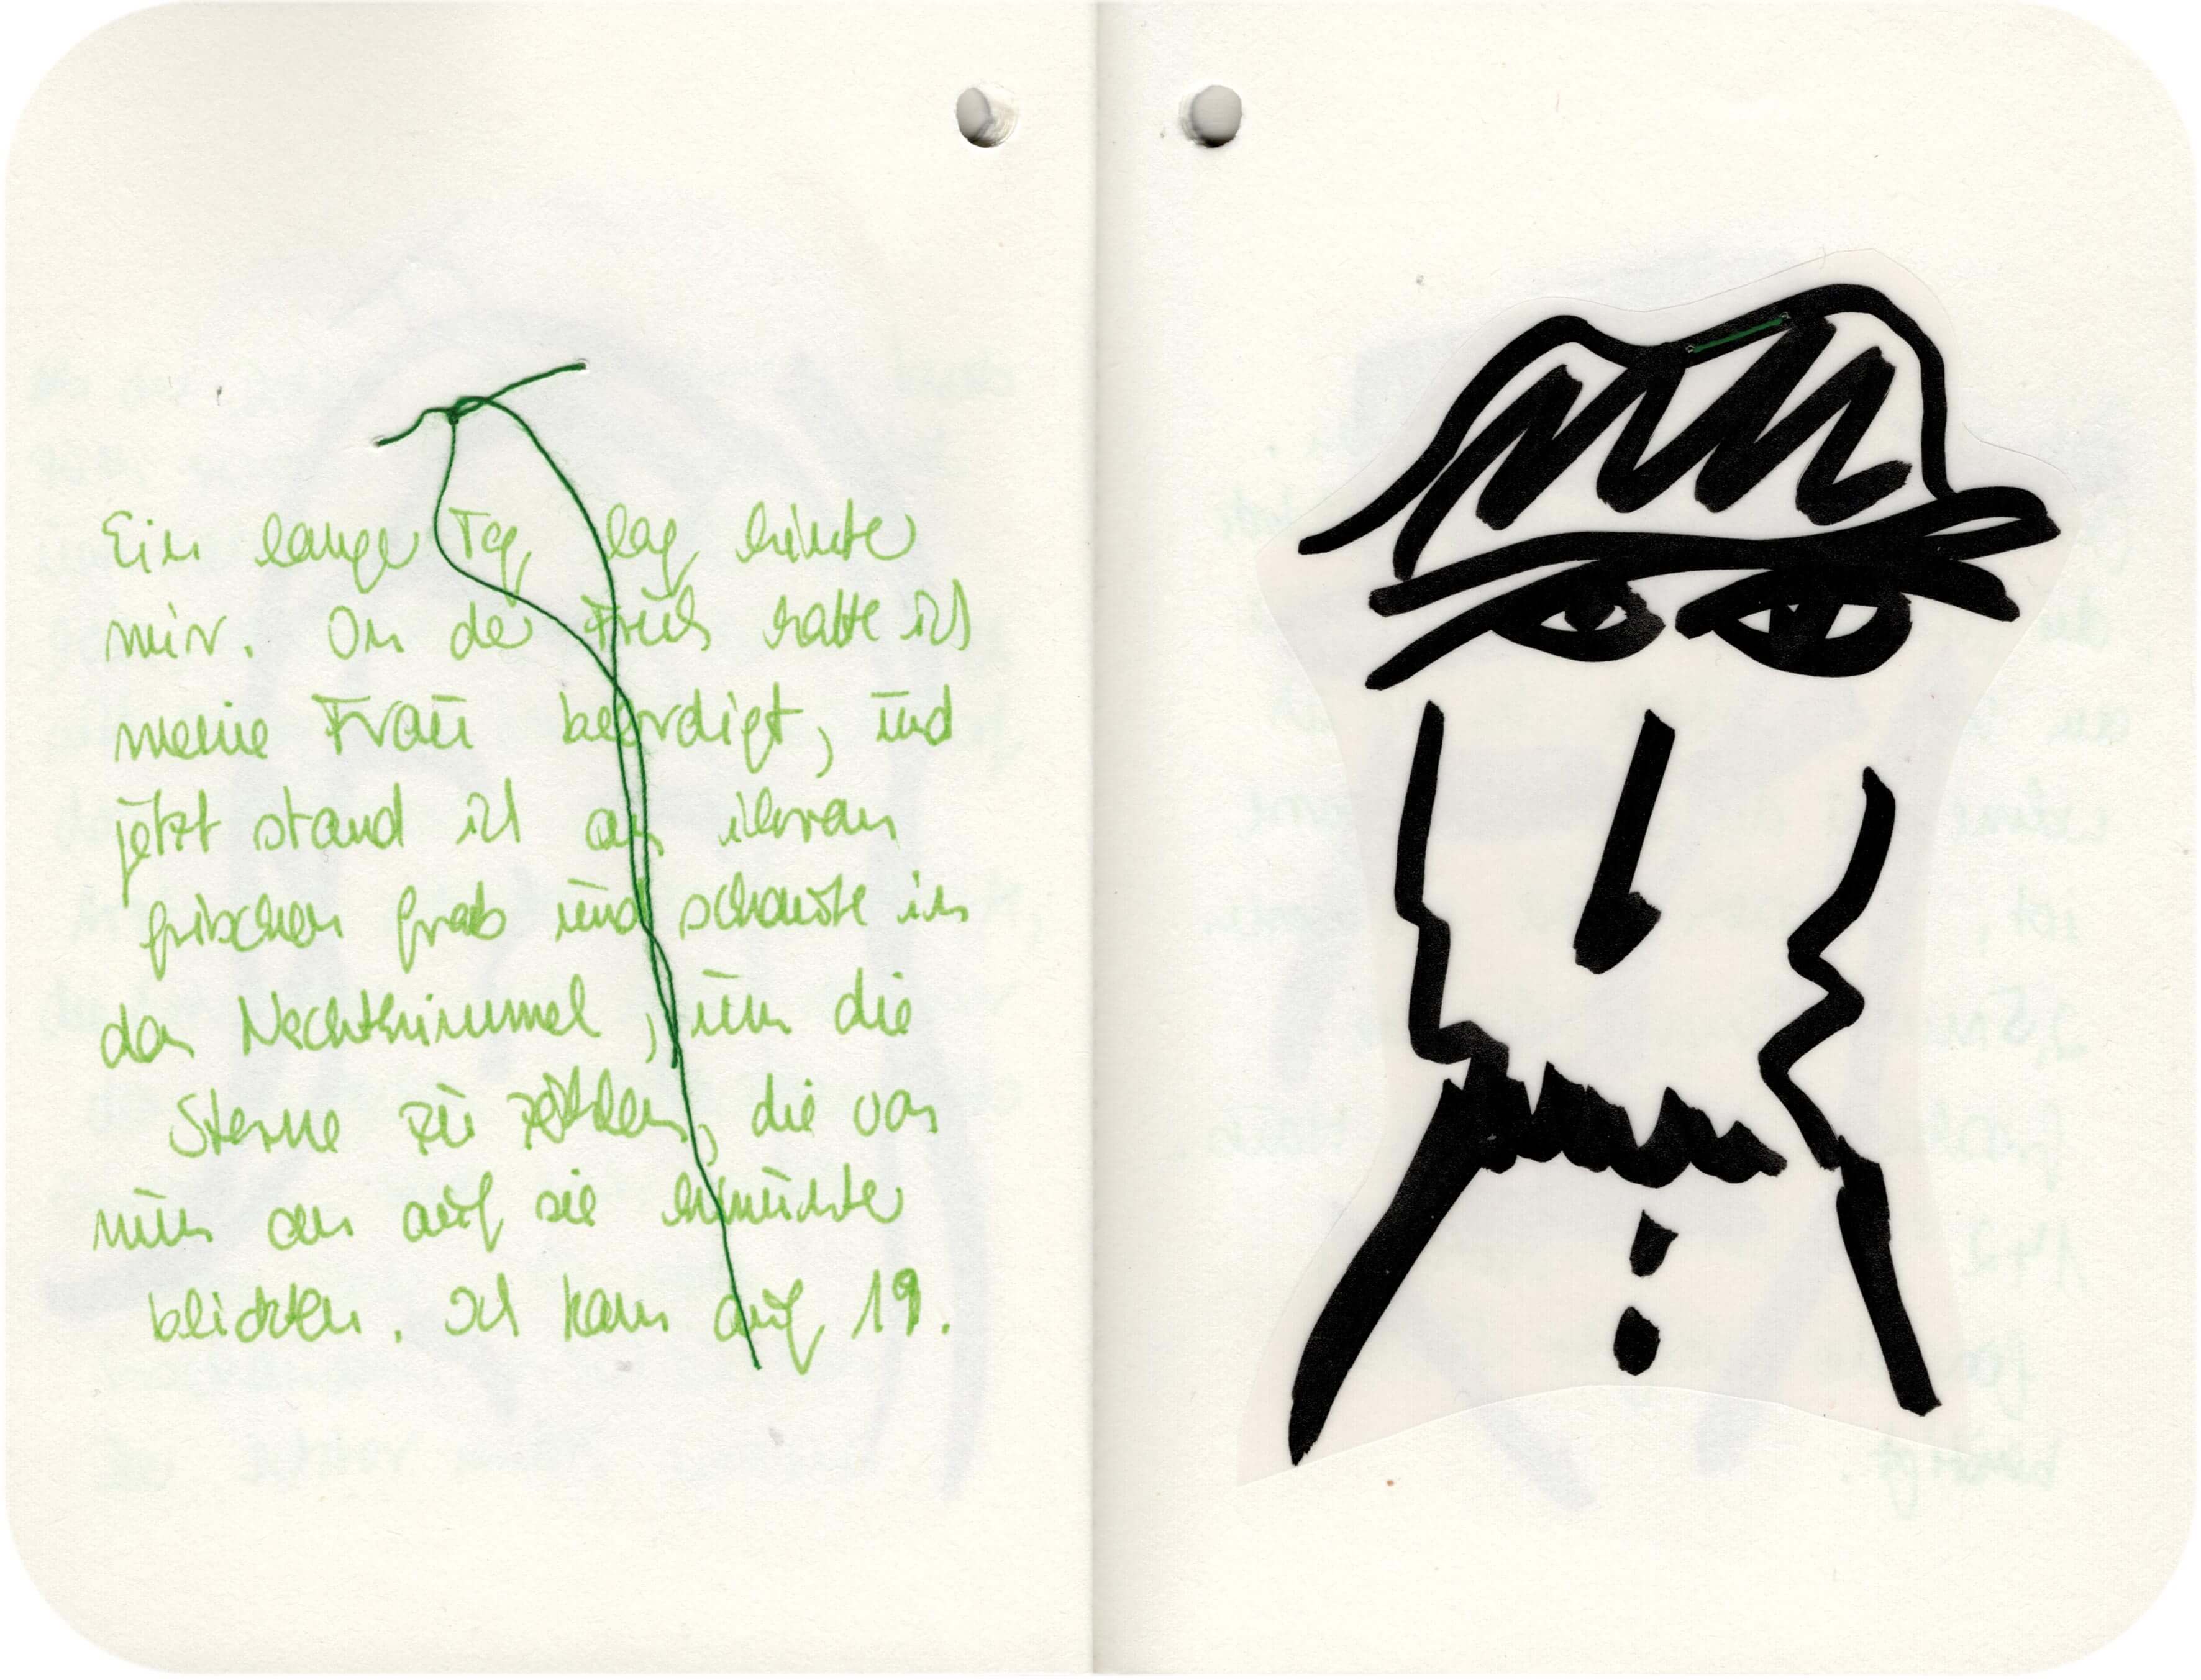 Ein langer Tag lag hinter
mir. In der Früh hatte ich
meine Frau beerdigt, und
jetzt stand ich an ihrem
frischen Grab und schaute in
den Nachthimmel, um die
Sterne zu zählen, die von
nun an auf sie herunter
blickten. Ich kam auf 19.